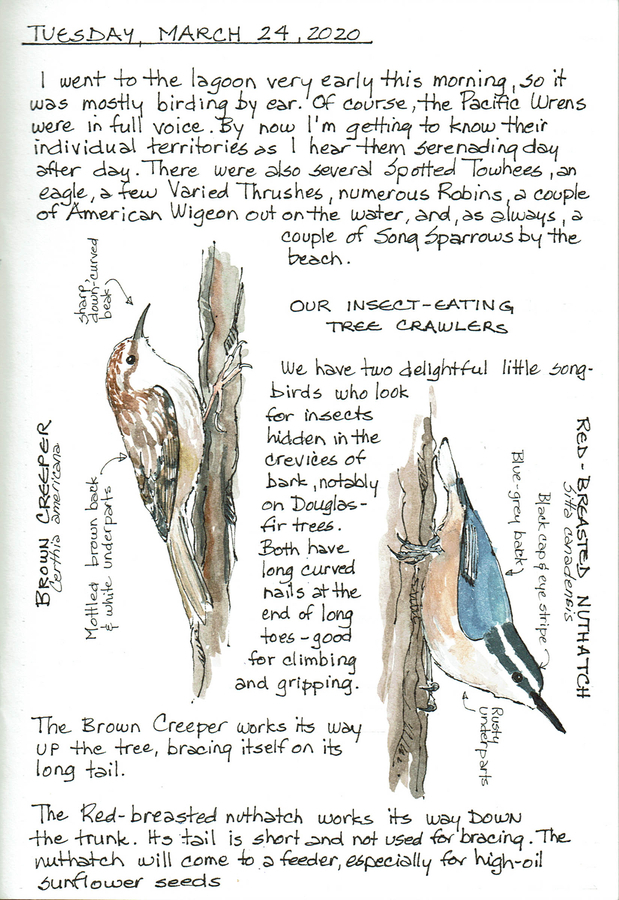 TUESDAY, MARCH 24, 2020
I went to the lagoon very early this morning, so it
was mostly birding by ear. Of course, the Pacific Wrens
were in full voice. By now I'm getting to know their
individual territories as I hear them serenading day
after day. There were also several Spotted Towhees, an
eagle, a few Varied Thrushes, numerous Robins, a couple
of American Wigeon out on the water, and, as always, a
couple of Song Sparrows by the
beach.
sharp,
down-curved
beak
BROWN CREEPER
Certhia americana
Mottled brown back
& white underparts
OUR INSECT-EATING
TREE CRAWLERS
We have two delightful little song-
birds who look
for insects
hidden in the
crevices of
bark, notably
on Douglas-
fir trees.
Both have
long curved
nails at the
end of long
toes - good
for climbing
and gripping.
RED-BREASTED NUTHATCH
Sitta canadensis
Black cap & eye stripe
Blue-grey back
Rusty
underparts
The Brown Creeper works its way
UP the tree, bracing itself on its
long tail.
The Red-breasted nuthatch works its way DOWN
the trunk. Its tail is short and not used for bracing. The
nuthatch will come to a feeder, especially for high-oil
sunflower seeds